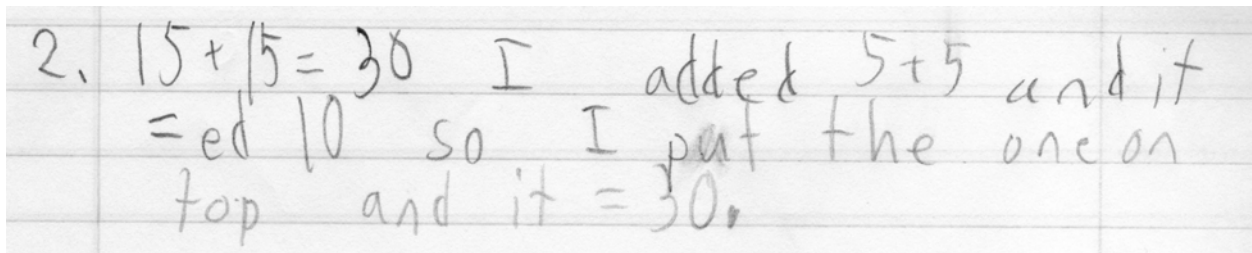 2. 15+15=30 I added 5+5 and it
=ed 10 so I put the one on
top and it = 30.